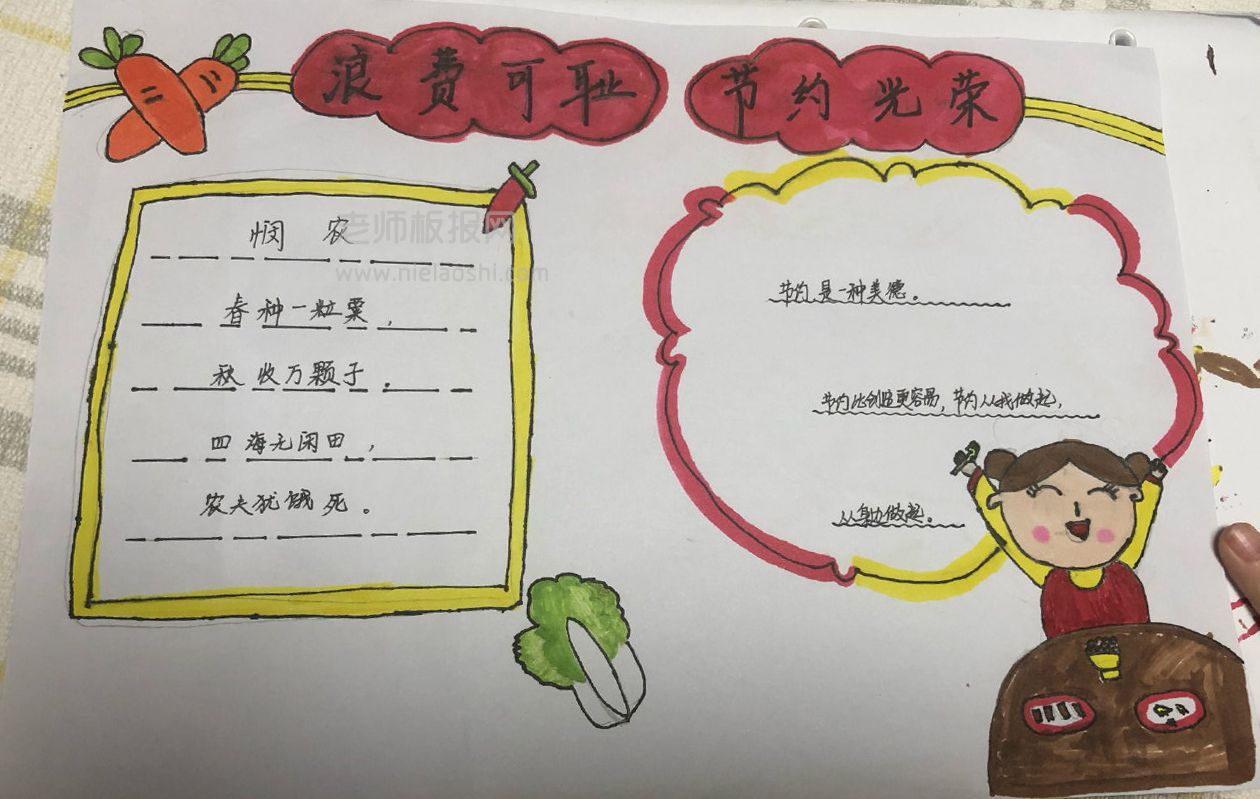 浪费可耻 节约光荣
悯农
老师板报网
www.nielaoshi.com
春种一粒粟,
秋收万颗子。
四海无闲田,
农夫犹饿死。
节约是一种美德。
节约比创造更容易,节约从我做起,
从身边做起。